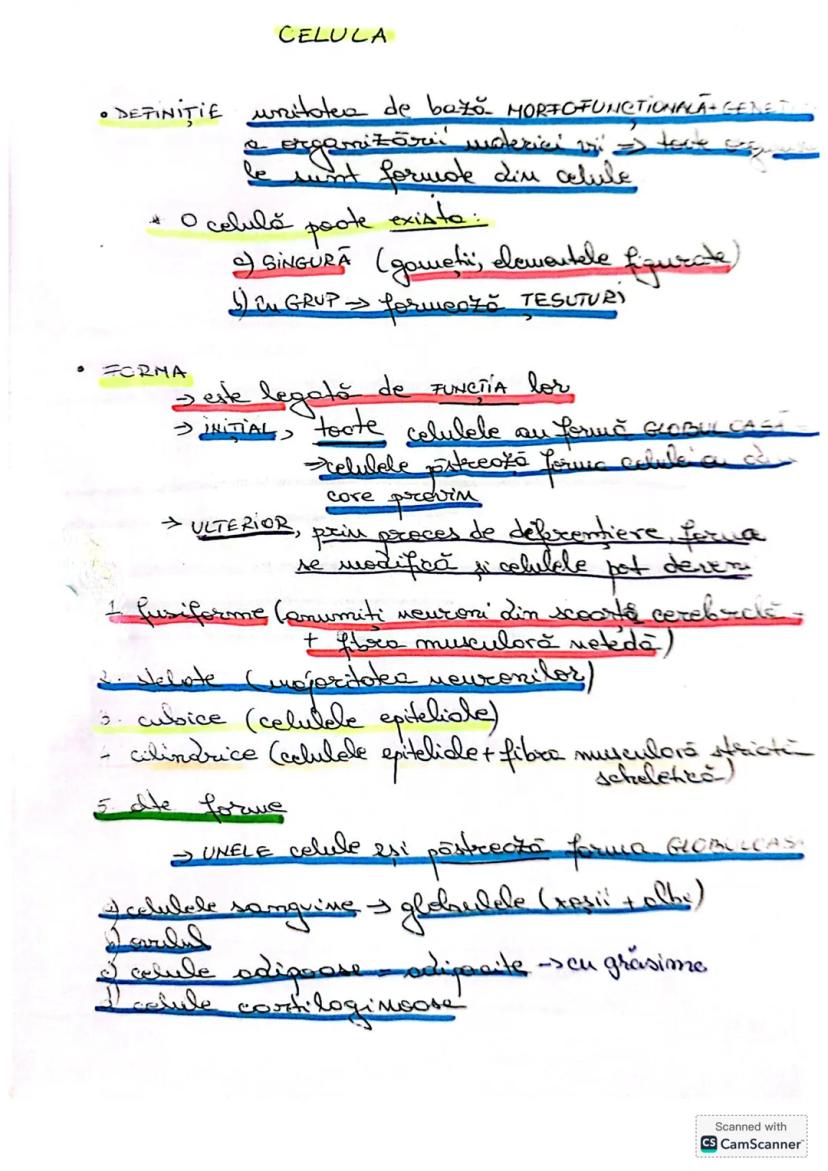 CELULA
• DEFINIȚIE unitatea de bază MORFOFUNCȚIONALĂ+GENET
a organizării materiei vii → toate
le sunt formate din celule
* O celulă poate exista:
a) SINGURĂ (gameții, elementele figurate)
b) în GRUP → formează ȚESUTURI
• FORMA
→ este legată de FUNCȚIA lor
→ INIȚIAL, toate celulele au formă GLOBULOASĂ
→ celulele păstrează forma celulei a din
care provin
→ ULTERIOR, prin proces de diferențiere, forma
se modifică și celulele pot deveni
1. fusiforme (anumiți neuroni din scoarța cerebrală
+ fibra musculară netedă)
2. stelate (majoritatea neuronilor)
3. cubice (celulele epiteliale)
4 cilindrice (celulele epiteliale + fibra musculară striată
scheletică)
5. alte forme
→ UNELE celule își păstrează forma GLOBULOAS
a) celulele sanguine → globulele (roșii + albe)
b) ovulul
c) celule adipoase = adipocite → cu grăsime
d) celule cartilaginoase
Scanned with
CS CamScanner